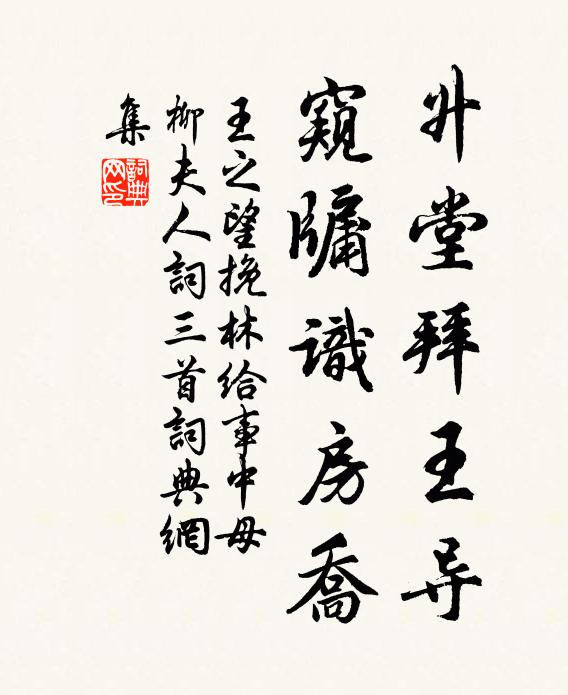 升堂拜王导
窥牖識房喬
王之望挽林给事中母
柳夫人詞三首詞典網
集
詞典
网印